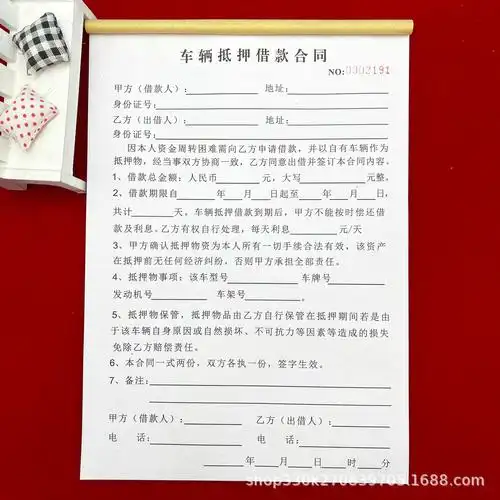 车辆抵押借款合同
NO:0302191
甲方（借款人）：________地址：________
身份证号：________
乙方（出借人）：________地址：________
身份证号：________
因本人资金周转困难需向乙方申请借款，并以自有车辆作为
抵押物，经当事双方协商一致，乙方同意出借并签订本合同内容。
1、借款总金额：人民币______元，大写______元整。
2、借款期限自____年__月__日起至____年__月__日，
共计____天，车辆抵押借款到期后，甲方不能按时偿还借
款及利息。乙方有权自行处理，每天利息____元/天
3、甲方确认抵押物资为本人所有一切手续合法有效、该资产
在抵押前无任何经济纠纷，否则甲方承担全部责任。
4、抵押物事项：该车型号________车牌号________
发动机号________车架号________。
5、抵押物保管，抵押物品由乙方自行保管在抵押期间若是由
于该车辆自身原因或自然损坏、不可抗力等因素等造成的损失
免除乙方赔偿责任。
6、本合同一式两份，双方各执一份，签字生效。
7、备注：________
甲方（借款人）：________ 乙方（出借人）：________
电 话：________ 电 话：________
____年__月__日__时__分
shop330k2708397051688.com